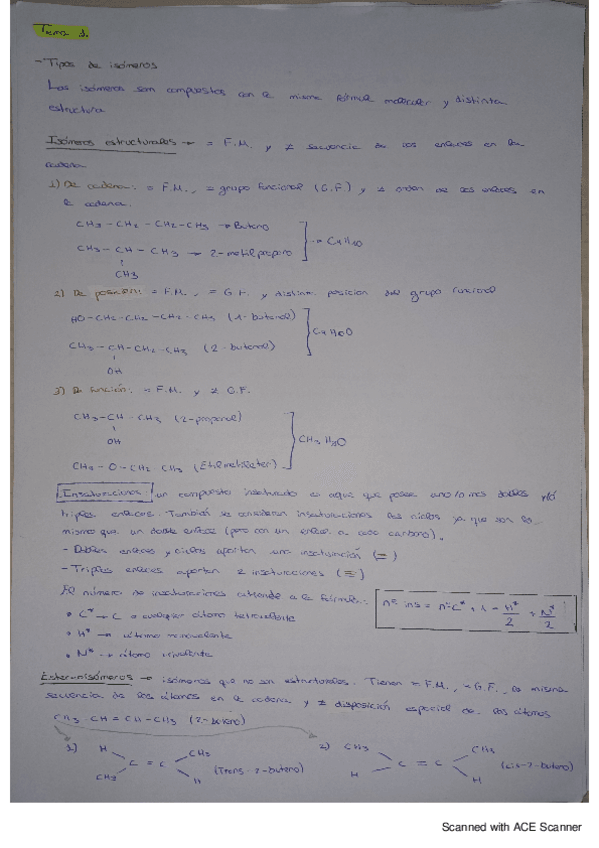 Tema 1.
- Tipos de isómeros
Los isómeros son compuestos con la misma fórmula molecular y distinta
estructura
Isómeros estructurales → = F.M. y ≠ secuencia de los enlaces en la
cadena
1) De cadena: = F.M., = grupo funcional (G.F) y ≠ orden de los enlaces en
la cadena.
CH3 - CH2 - CH2 - CH3 → Butano
CH3 - CH - CH3 → 2-metilpropano
→ C4H10
CH3
2) De posición: = F.M., = G.F. y distinta posición del grupo funcional
HO-CH2-CH2-CH2-CH3 (1-butanol)
CH3-CH-CH2-CH3 (2-butanol)
OH
3) De función: = F.M. y ≠ G.F.
CH3-CH-CH3 (2-propanol)
OH
CH3-O-CH2-CH3 (Etilmetileter)
Insaturaciones un compuesto insaturado es aquel que posee uno/o más dobles y/o
triples enlaces. También se consideran insaturaciones los ciclos ya que son lo
mismo que un doble enlace (pero con un enlace a cada carbono).
- Dobles enlaces y ciclos aportan una insaturación (=)
- Triples enlaces aportan 2 insaturaciones (≡)
El número de insaturaciones atiende a la fórmula:
nº ins = nºC* + 1 - H*/2 + N*/2
• C* → C o cualquier átomo tetravalente
• H* → átomo monovalente
• N* → átomo trivalente
→ isómeros que no son estructurales. Tienen = F.M., = G.F., la misma
secuencia de los átomos en la cadena y ≠ disposición espacial de los átomos
CH3-CH=CH-CH3 (2-buteno)
1) H CH3 2) CH3 CH3
C = C (Trans-2-buteno) C = C (cis-2-buteno)
CH3 H H H
Scanned with ACE Scanner